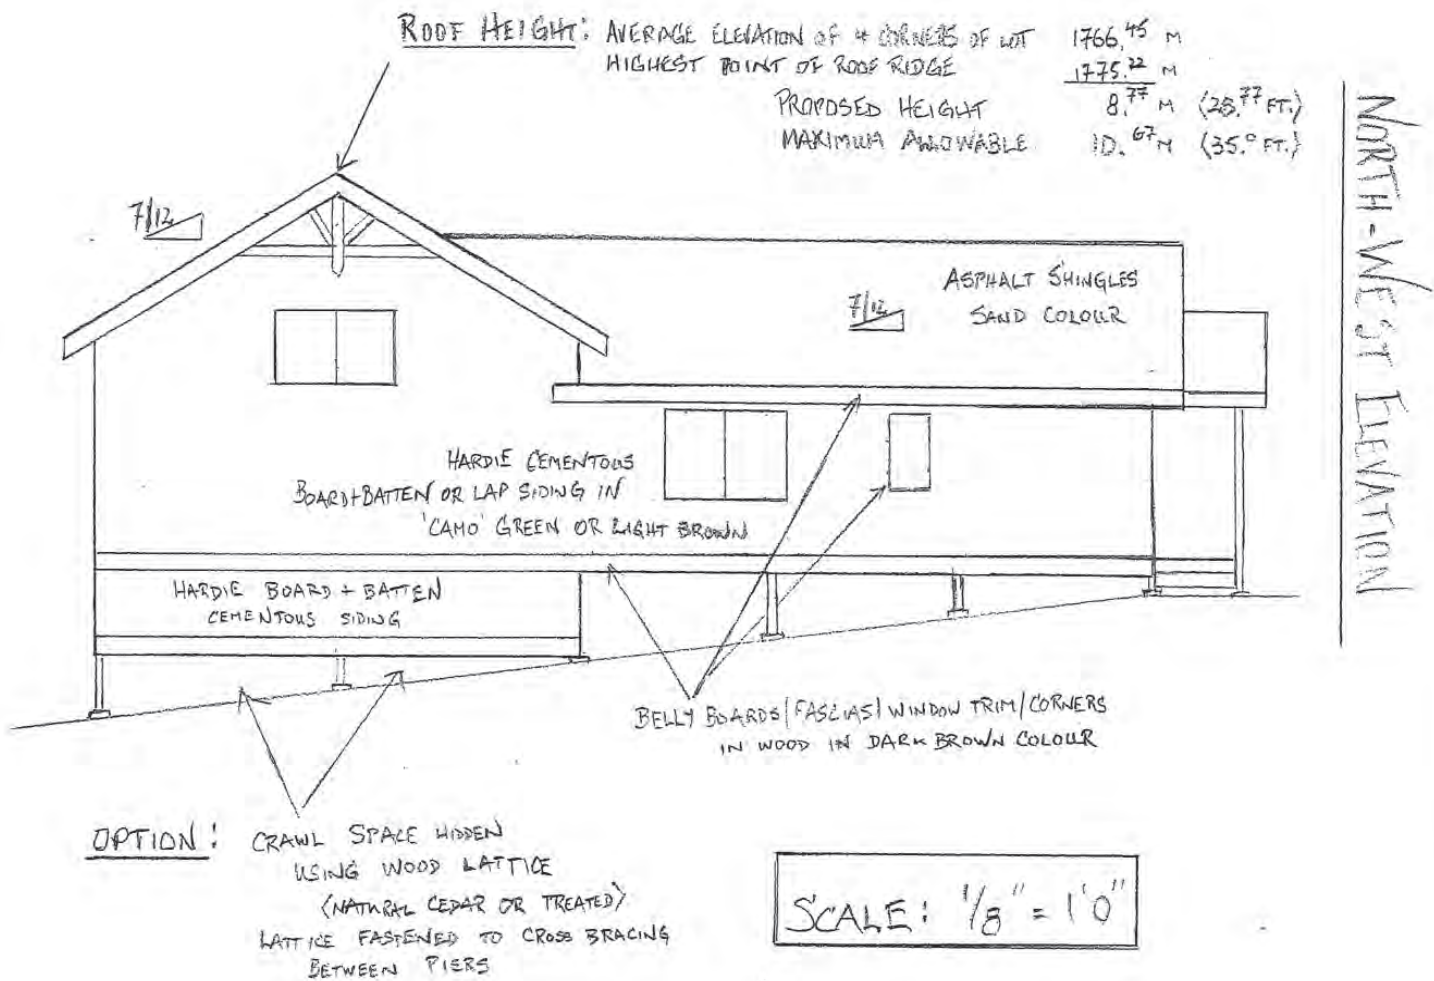 ROOF HEIGHT: AVERAGE ELEVATION OF 4 CORNERS OF LOT 1766.45 M
HIGHEST POINT OF ROOF RIDGE 1775.22 M
PROPOSED HEIGHT 8.77 M (28.77 FT.)
MAXIMUM ALLOWABLE 10.67 M (35.0 FT.)
NORTH-WEST ELEVATION
7/12
ASPHALT SHINGLES
SAND COLOUR
7/12
HARDIE CEMENTOUS
BOARD+BATTEN OR LAP SIDING IN
'CAMO' GREEN OR LIGHT BROWN
HARDIE BOARD + BATTEN
CEMENTOUS SIDING
BELLY BOARDS/FASCIAS/WINDOW TRIM/CORNERS
IN WOOD IN DARK BROWN COLOUR
OPTION: CRAWL SPACE HIDDEN
USING WOOD LATTICE
(NATURAL CEDAR OR TREATED)
LATTICE FASTENED TO CROSS BRACING
BETWEEN PIERS
SCALE: 1/8" = 1'0"